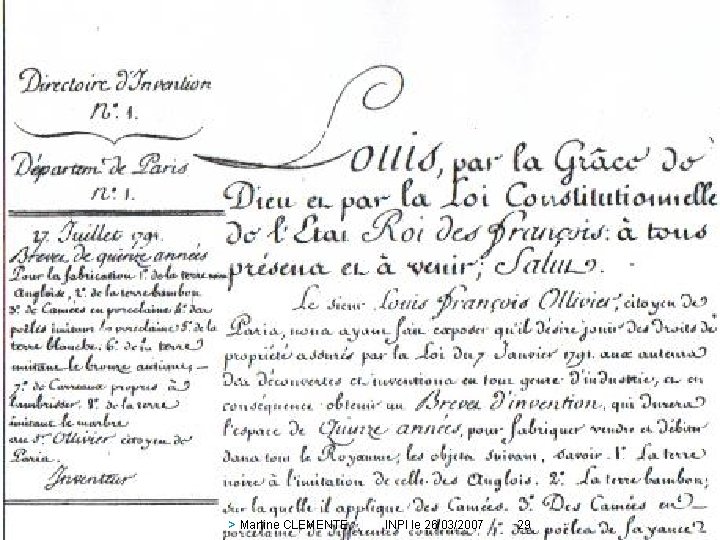 Directoire d'Invention
N°. 1.
Départem.t de Paris
N°. 1.
27 Juillet 1791.
Brevet de quinze années
Pour la fabrication 1°. de la terre noire
Angloise, 2°. de la terre bambou
3°. de Camées en porcelaine 4°. des
poëles imitant la porcelaine 5°. de la
terre blanche. 6°. de la terre
imitant le bronze antique,
7°. de Carreaux propres à
lambrisser. 8°. de la terre
imitant le marbre
au Sr. Ollivier citoyen de
Paris.
Inventeur
Louis, par la Grâce de
Dieu et par la Loi Constitutionnelle
de l'Etat Roi des françois: à tous
présens et à venir; Salut.
Le sieur Louis François Ollivier, citoyen de
Paris, nous ayant fait exposer qu'il désire jouir des droits de
propriété assurés par la Loi du 7 Janvier 1791. aux auteurs
des découvertes et inventions en tout genre d'industrie, et en
conséquence obtenir un Brevet d'invention, qui durera
l'espace de Quinze années, pour fabriquer vendre et débiter
dans tout le Royaume, les objets suivans, savoir. 1°. La terre
noire à l'imitation de celle des Anglois. 2°. La terre bambou,
sur laquelle il applique des Camées. 3°. Des Camées en
porcelaine de différentes couleurs. 4°. des poëles de fayance
> Martine CLEMENTE INPI le 26/03/2007 29